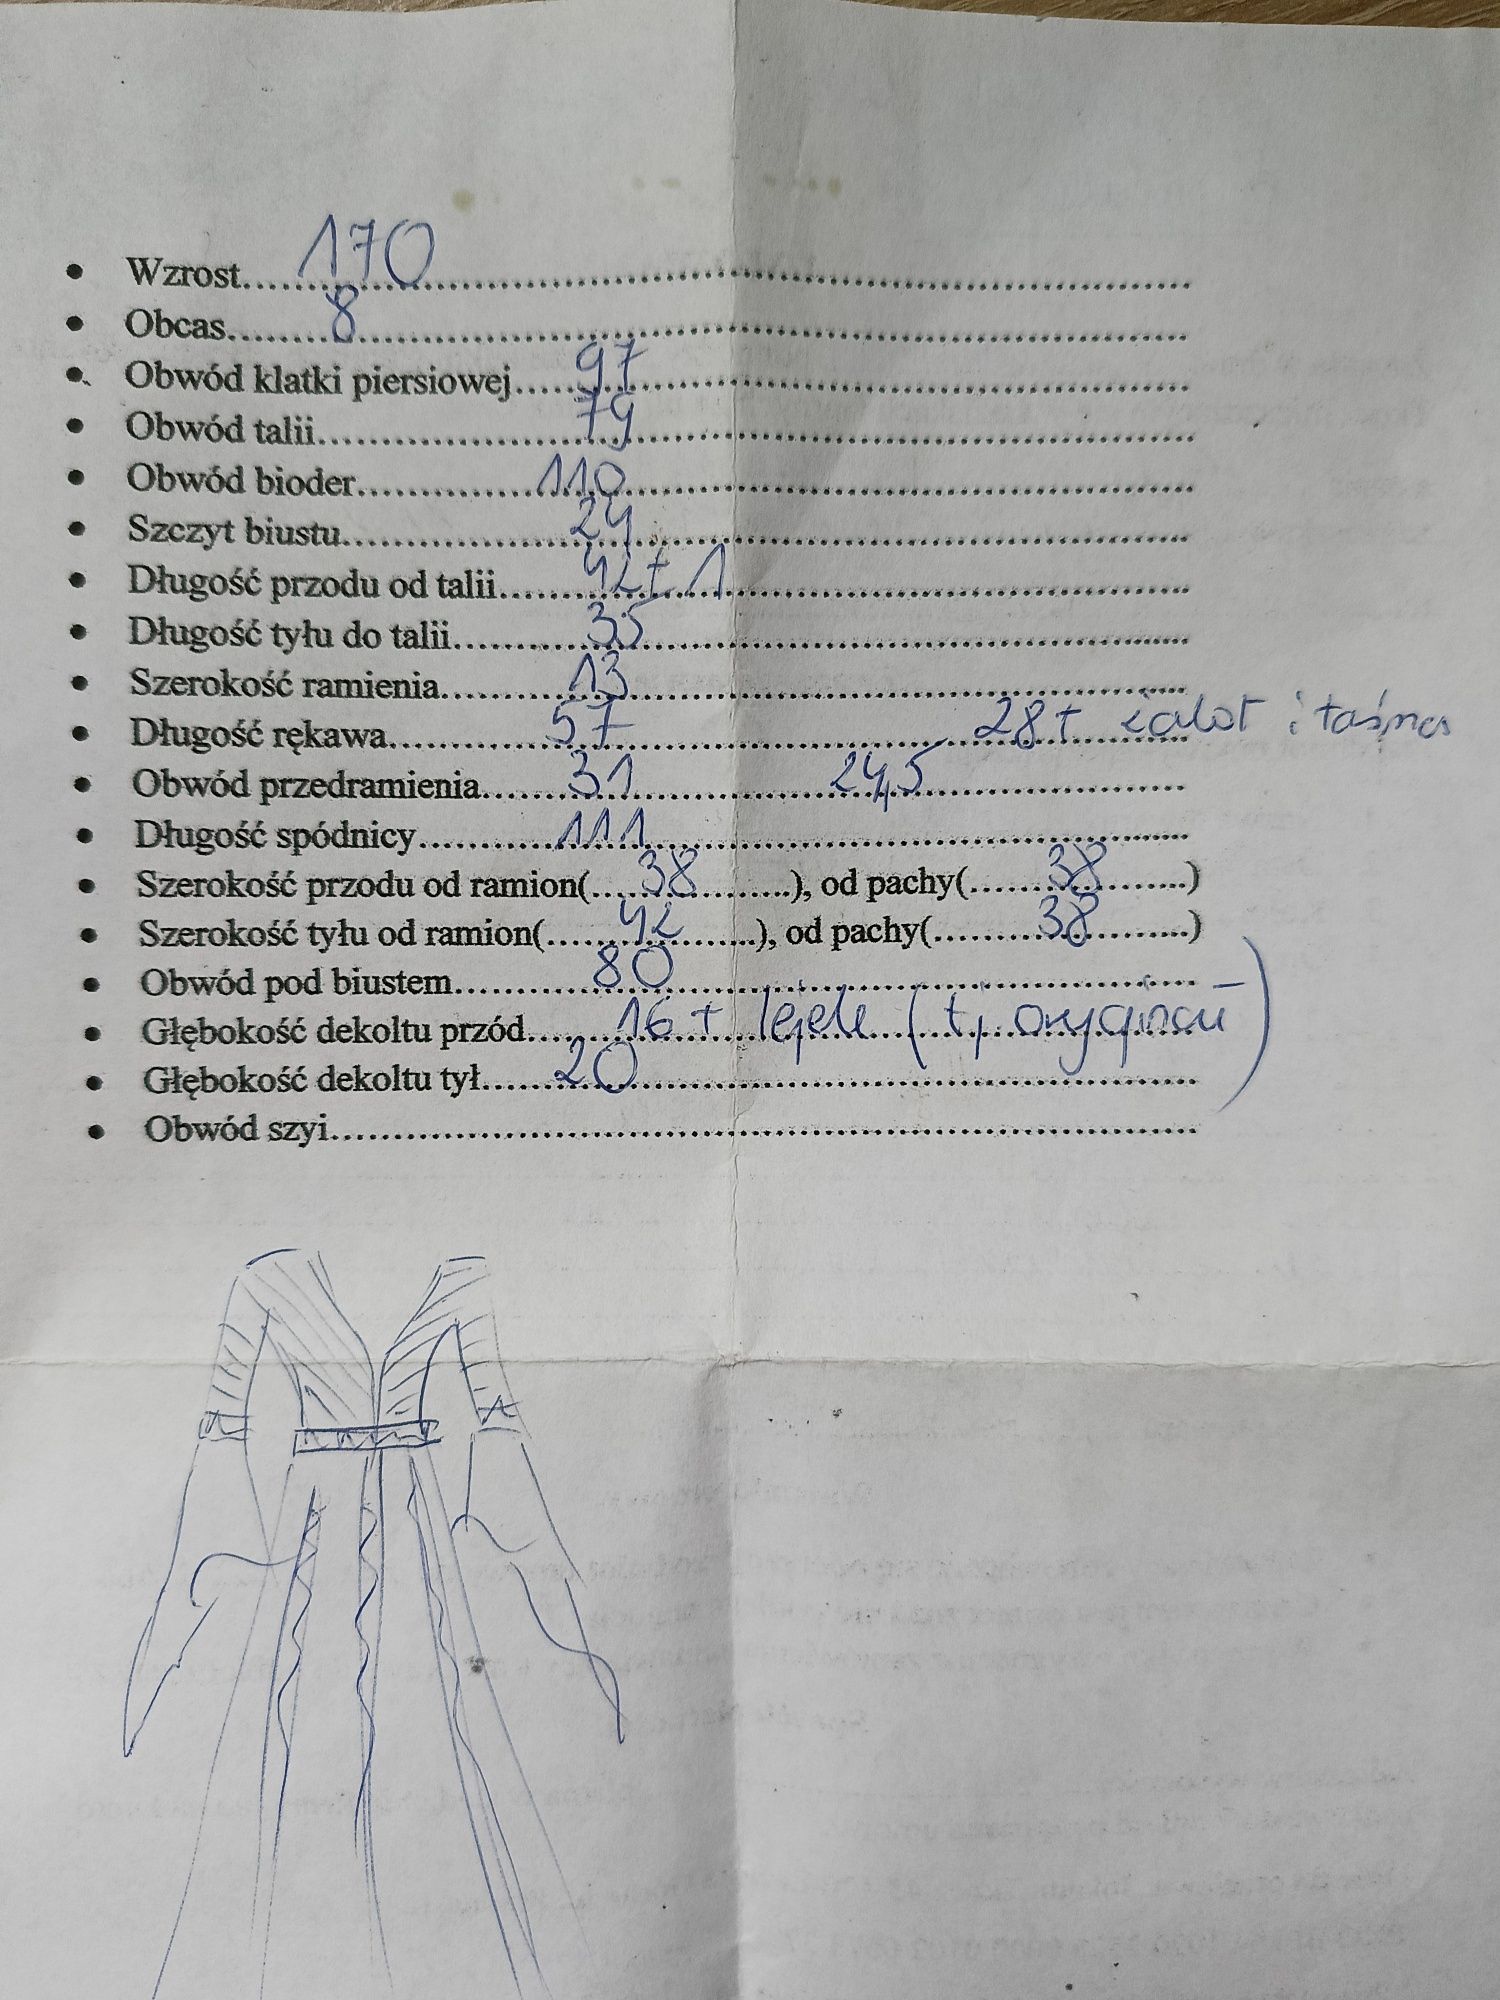 • Wzrost....170....
• Obcas....8....
• Obwód klatki piersiowej....97....
• Obwód talii....79....
• Obwód bioder....110....
• Szczyt biustu....24....
• Długość przodu od talii....42+1....
• Długość tyłu do talii....35....
• Szerokość ramienia....13....
• Długość rękawa....57....28+ i taśma
• Obwód przedramienia....31....24,5....
• Długość spódnicy....111....
• Szerokość przodu od ramion(....38....), od pachy(....38....)
• Szerokość tyłu od ramion(....42....), od pachy(....38....)
• Obwód pod biustem....80....
• Głębokość dekoltu przód....16+ lejek (tj oryginał)
• Głębokość dekoltu tył....20....
• Obwód szyi....